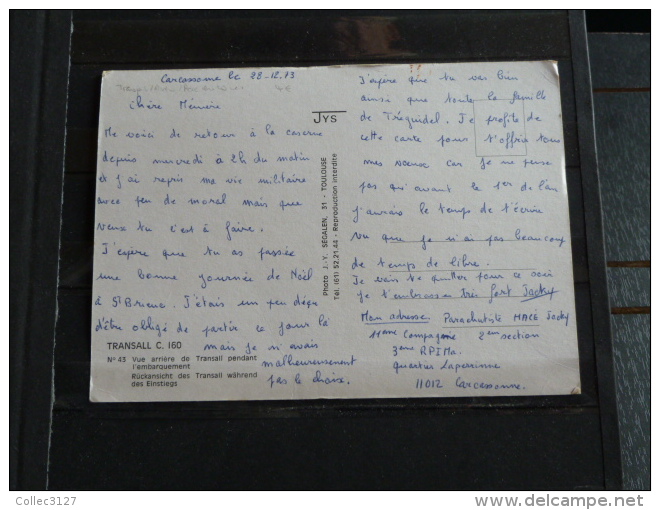 Carcassonne le 28-12-73
4€
Chère Mémère
Me voici de retour à la caserne
depuis mercredi à 2h du matin
et j'ai repris ma vie militaire
avec peu de moral mais que
veux tu c'est à faire.
J'espère que tu as passée
une bonne journée de Noël
à St Brieuc. J'étais un peu déçu
d'être obligé de partir ce jour là
mais je n'avais
malheureusement
pas le choix.
TRANSALL C. 160
N° 43 Vue arrière de Transall pendant
l'embarquement
Rückansicht des Transall während
des Einstiegs
JYS
Photo J.-Y. SEGALEN, 31 - TOULOUSE
Tél. (61) 52.21.44 - Reproduction interdite
J'espère que tu vas bien
ainsi que toute la famille
de Tréguidel. Je profite de
cette carte pour t'offrir tous
mes voeux car je ne pense
pas qu'avant le 1er de l'an
j'aurais le temps de t'écrire
vu que je n'ai pas beaucoup
de temps de libre.
Je vais te quitter pour ce soir
je t'embrasse très fort Jacky
Mon adresse: Parachutiste MACÉ Jacky
11ème Compagnie 2ème section
3ème R.P.I.Ma.
quartier Laperrinne
11012 Carcassonne.
Collec3127
delcampe.net